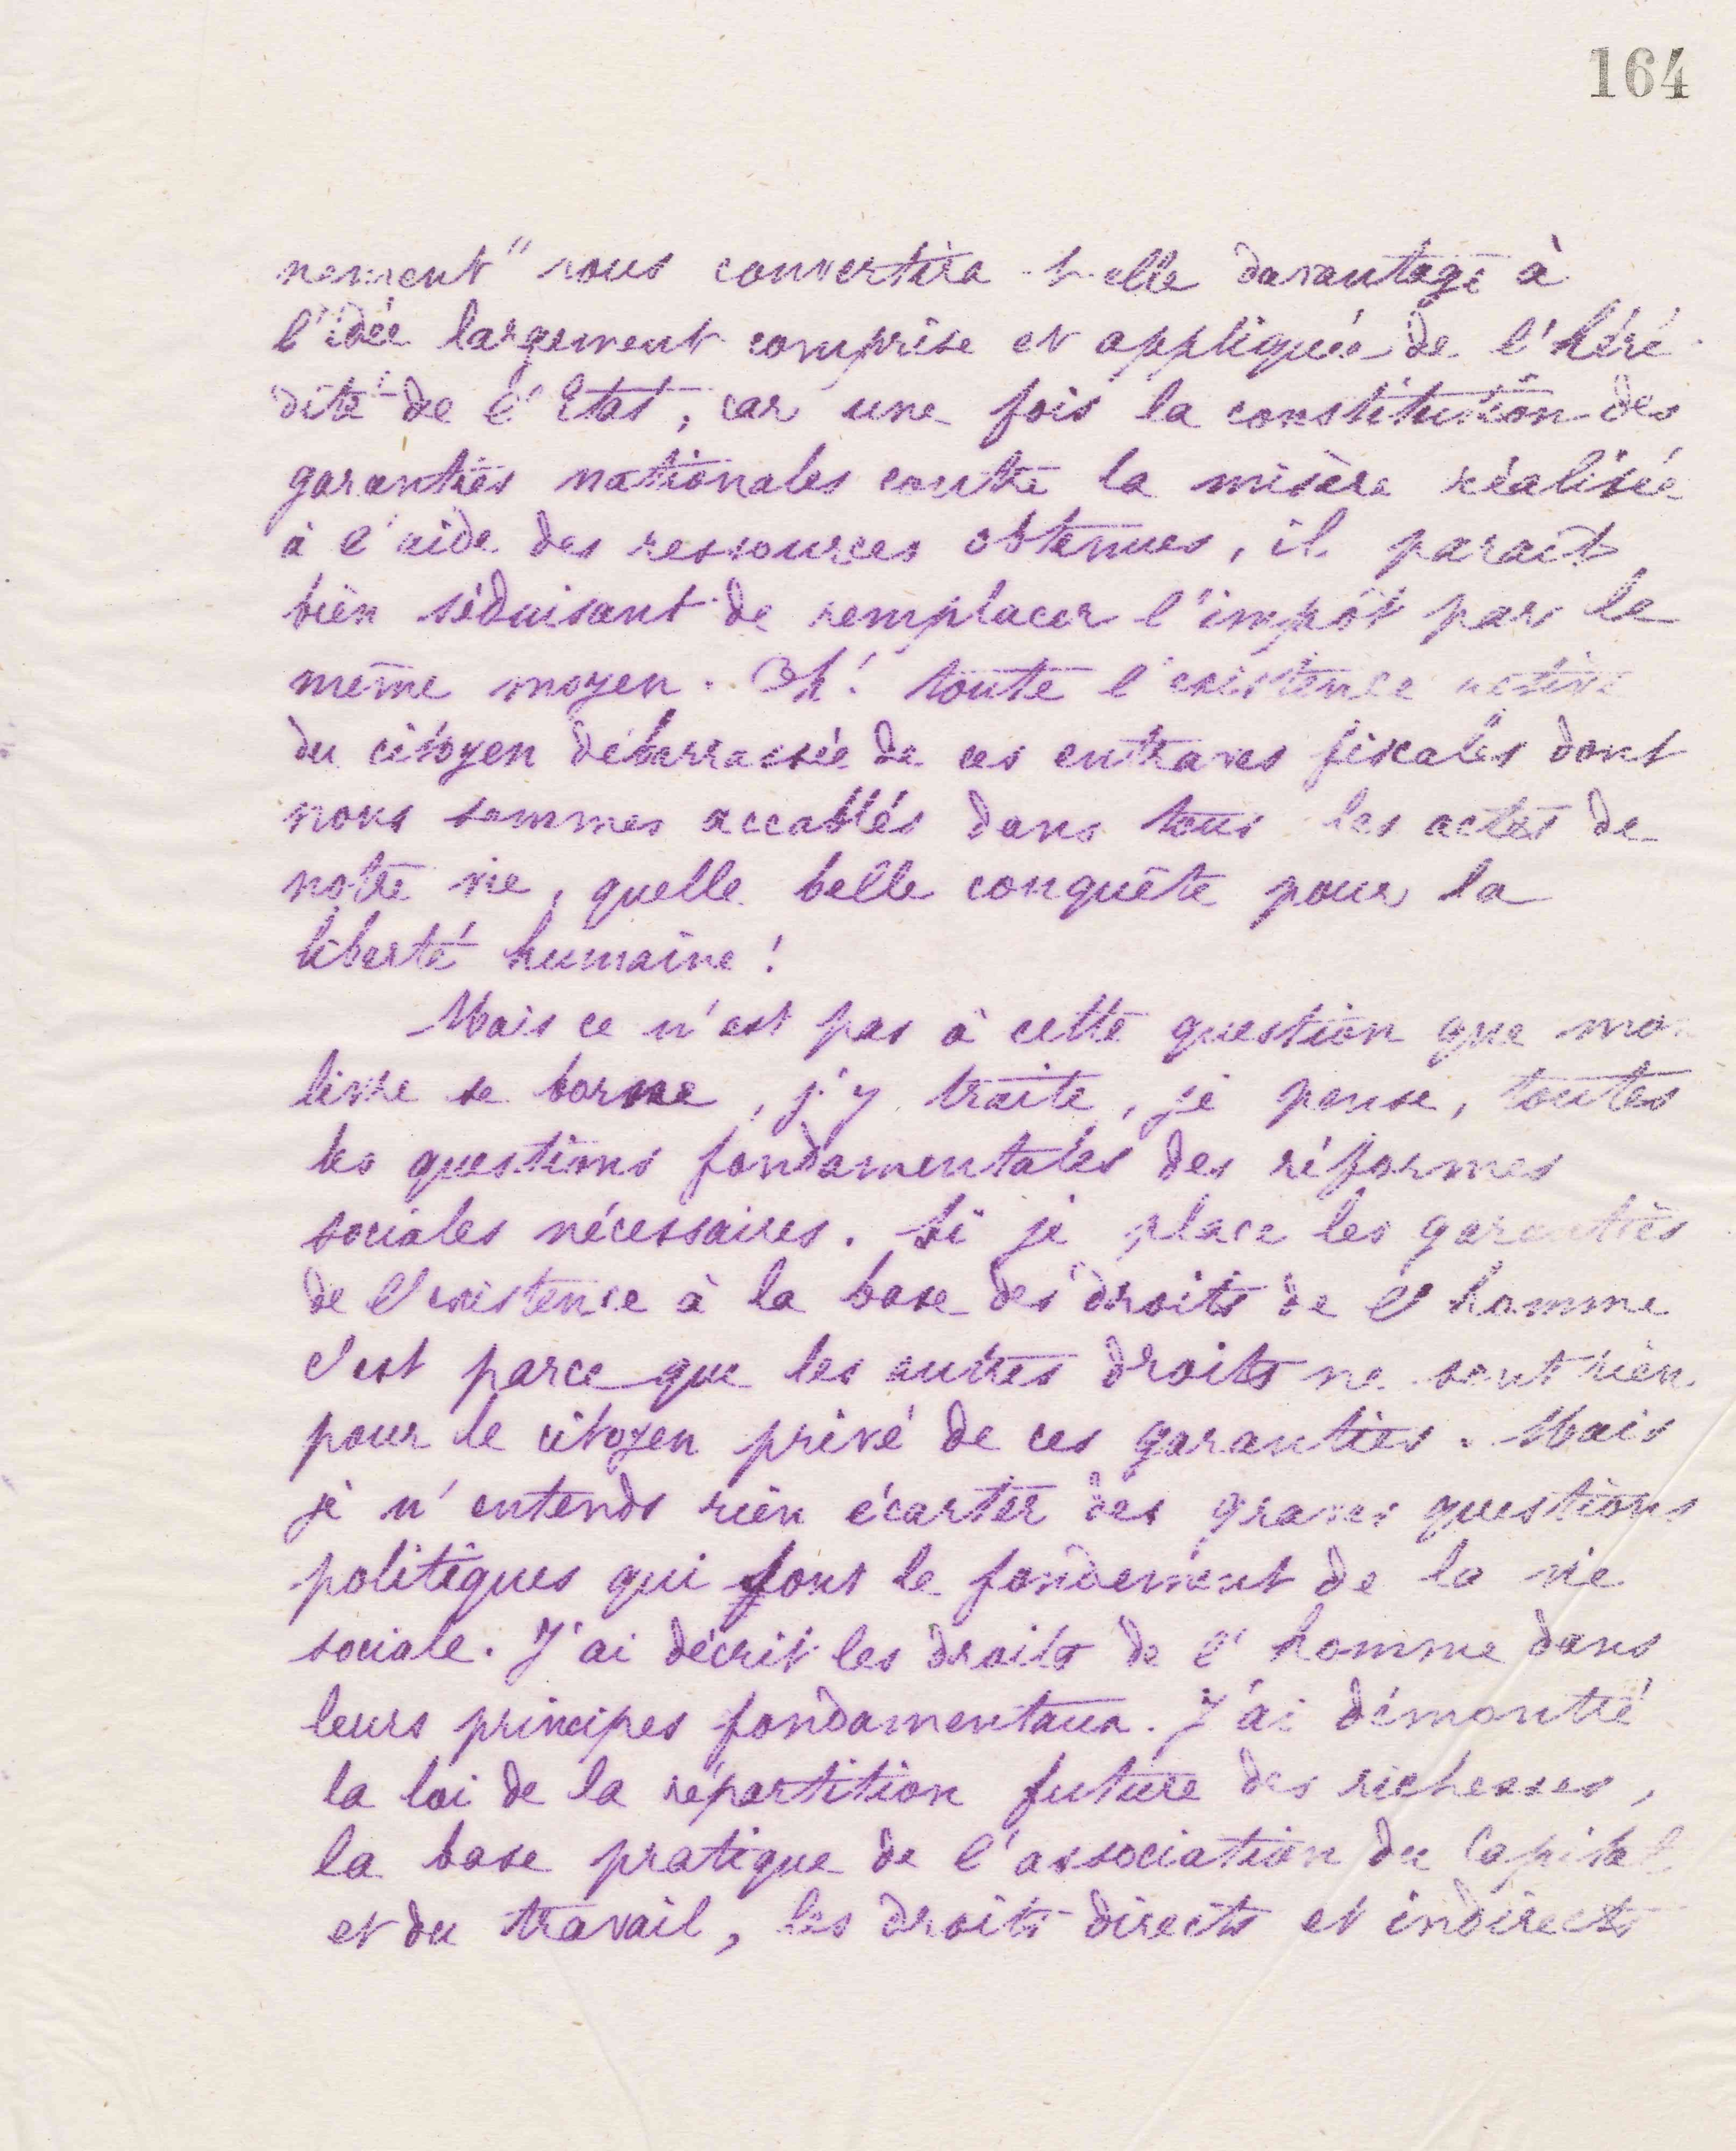 164
nement" vous convertira-t-elle davantage à
l'idée largement comprise et appliquée de l'héré
dité de l'Etat, car une fois la constitution des
garanties nationales contre la misère réalisée
à l'aide des ressources obtenues, il paraît
bien séduisant de remplacer l'impôt par le
même moyen. Oh! toute l'existence active
du citoyen débarrassée de ces entraves fiscales dont
nous sommes accablés dans tous les actes de
notre vie, quelle belle conquête pour la
liberté humaine!
Mais ce n'est pas à cette question que mon
livre se borne, j'y traite, je pense, toutes
les questions fondamentales des réformes
sociales nécessaires. Si je place les garanties
de l'existence à la base des droits de l'homme
c'est parce que les autres droits ne sont rien
pour le citoyen privé de ces garanties. Mais
je n'entends rien écarter des graves questions
politiques qui font le fondement de la vie
sociale. J'ai décrit les droits de l'homme dans
leurs principes fondamentaux. J'ai démontré
la loi de la répartition future des richesses,
la base pratique de l'association du Capital
et du travail, les droits directs et indirects